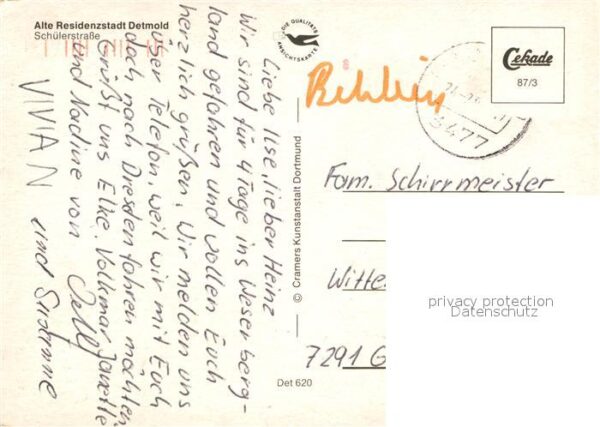 Alte Residenzstadt Detmold
Schülerstraße
DIE QUALITÄTS
ANSICHTSKARTE
Cekade
87/3
5477
Liebe Ilse, lieber Heinz
Wir sind für 4 Tage ins Weserberg-
land gefahren und wollen Euch
herzlich grüßen. Wir melden uns
über Telefon, weil wir mit Euch
doch nach Dresden fahren möchten
Grüßt uns Elke, Volkmar, Janette
und Nadine von
VIVIAN und Susanne
© Cramers Kunstanstalt Dortmund
Det 620
Fam. Schirrmeister
Witte
7291 G
privacy protection
Datenschutz